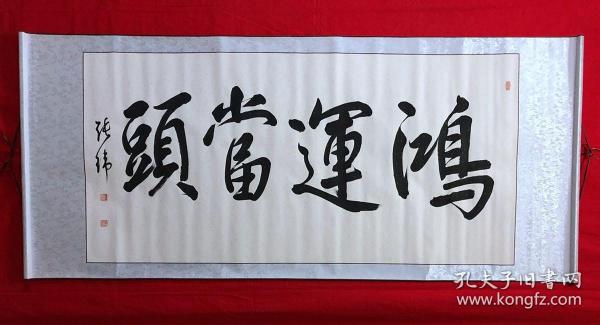 鴻運當頭
張瑋
孔夫子旧書网
www.kongfz.com